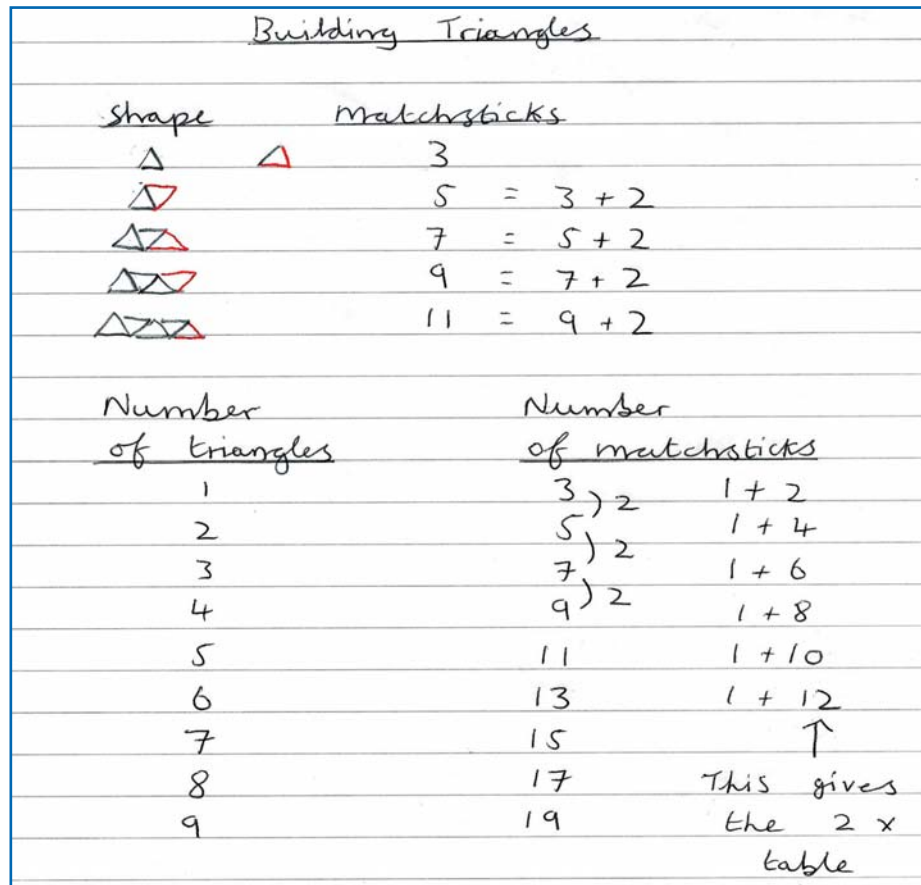 Building Triangles
Shape Matchsticks
3
5 = 3 + 2
7 = 5 + 2
9 = 7 + 2
11 = 9 + 2
Number Number
of triangles of matchsticks
1 3 ) 2 1 + 2
2 5 ) 2 1 + 4
3 7 ) 2 1 + 6
4 9 1 + 8
5 11 1 + 10
6 13 1 + 12
7 15 ↑
8 17 This gives
9 19 the 2 x
table